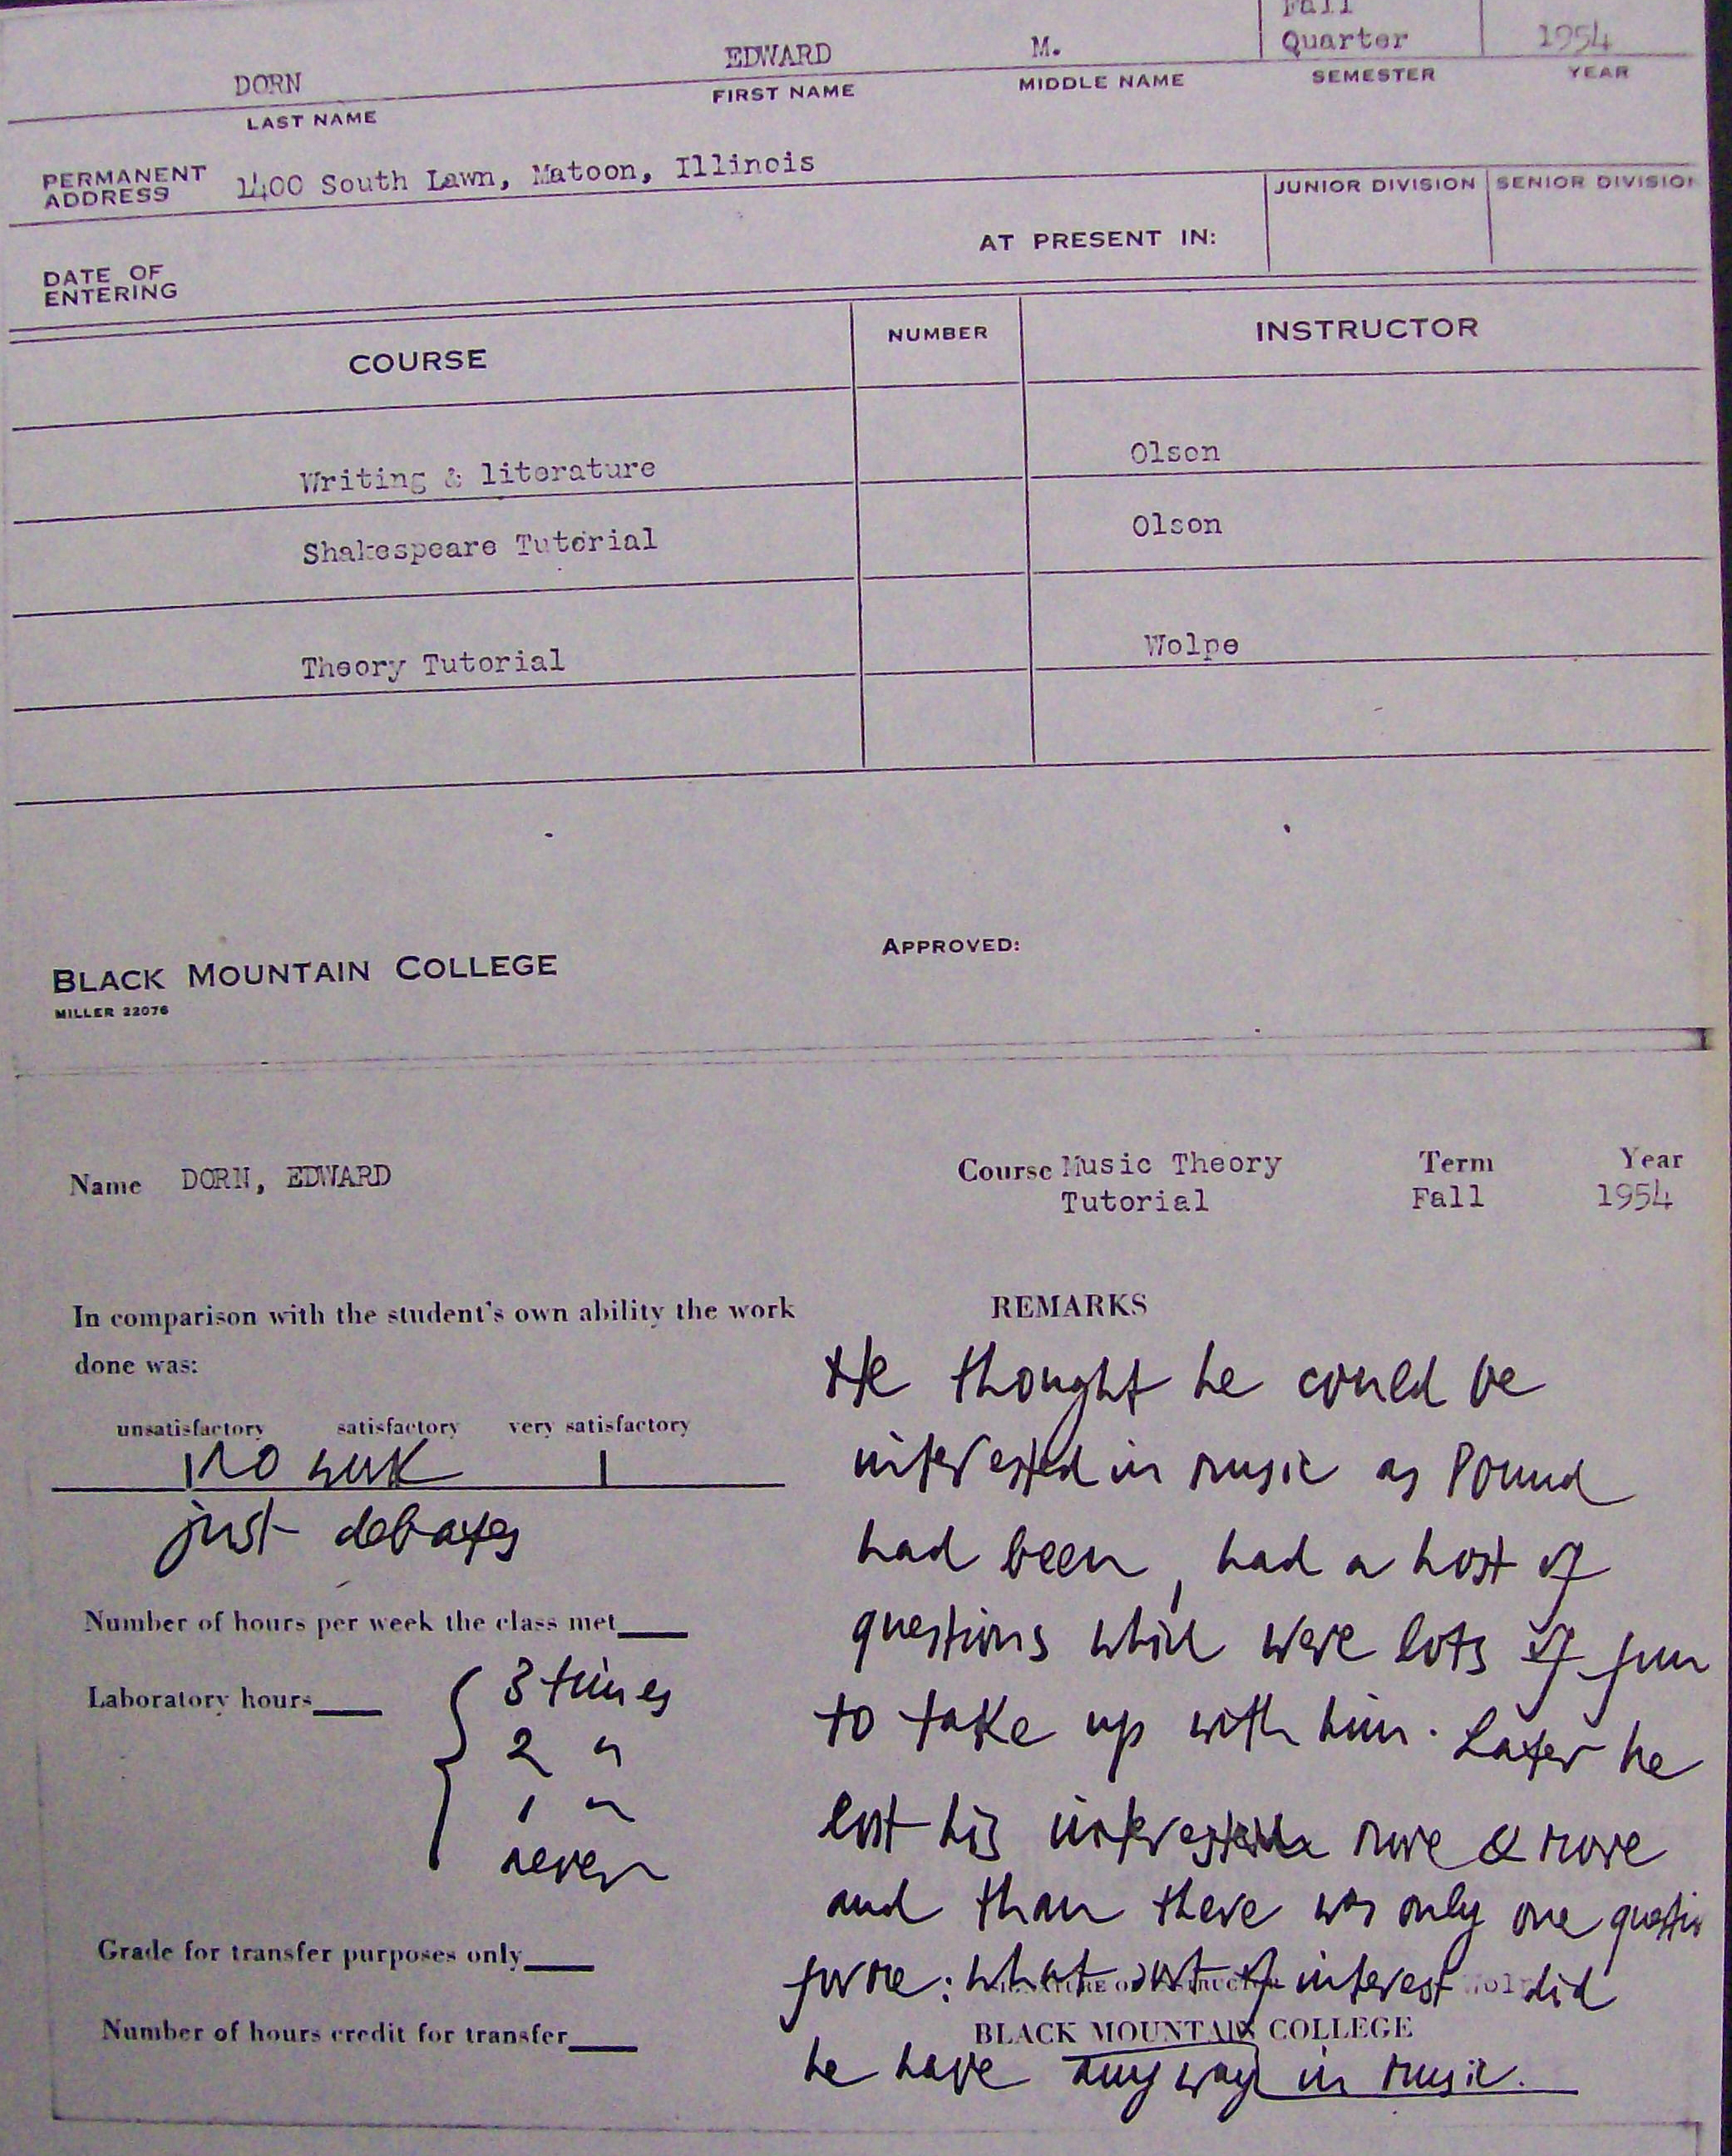 Fall
EDWARD M. Quarter 1954
DORN FIRST NAME MIDDLE NAME SEMESTER YEAR
LAST NAME
PERMANENT ADDRESS 1400 South Lawn, Matoon, Illinois
JUNIOR DIVISION SENIOR DIVISION
AT PRESENT IN:
DATE OF ENTERING
COURSE NUMBER INSTRUCTOR
Writing & literature Olson
Shakespeare Tutorial Olson
Theory Tutorial Wolpe
APPROVED:
BLACK MOUNTAIN COLLEGE
MILLER 22076
Name DORN, EDWARD
Course Music Theory Term Year
Tutorial Fall 1954
In comparison with the student's own ability the work
done was:
unsatisfactory satisfactory very satisfactory
no work
just debates
Number of hours per week the class met
Laboratory hours
3 times
2 "
1 "
never
Grade for transfer purposes only
Number of hours credit for transfer
REMARKS
He thought he could be
interested in music as Pound
had been, had a host of
questions which were lots of fun
to take up with him. Later he
lost his interest more & more
and than there was only one questio
for me: what sort of interest did
SIGNATURE OF INSTRUCTOR
BLACK MOUNTAIN COLLEGE
he have anyway in music.